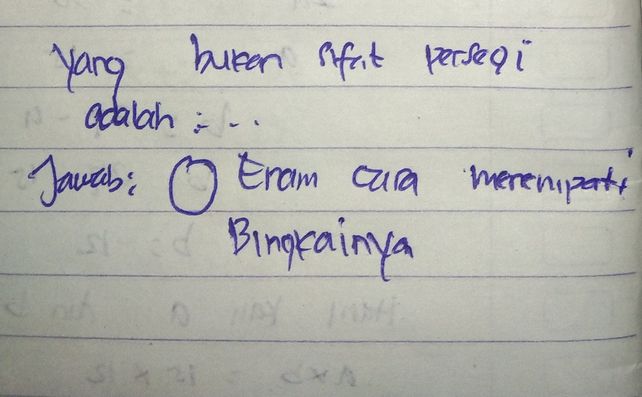 yang bukan sifat persegi
adalah :- ..
Jawab: Enam cara menempati
Bingkainya